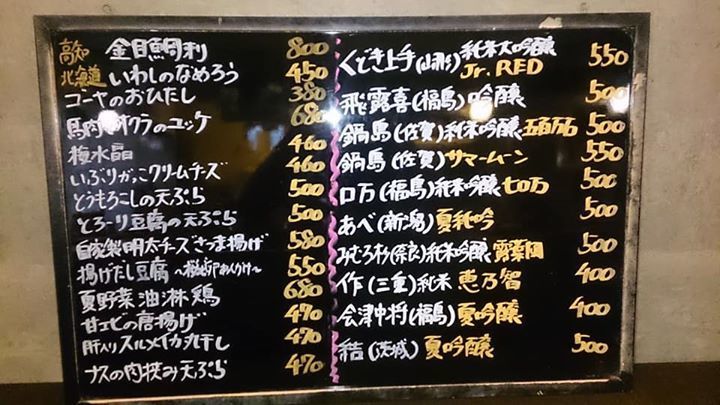 高知 金目鯛刺 800
北海道 いわしのなめろう 450
ゴーヤのおひたし 380
馬肉 クラのユッケ 680
梅水晶 460
いぶりがっこクリームチーズ 460
とうもろこしの天ぷら 500
とろーり豆腐の天ぷら 500
自家製明太チーズさつま揚げ 580
揚げだし豆腐 あんかけ〜 550
夏野菜油淋鶏 680
甘エビの唐揚げ 470
肝入りスルメイカ丸干し 470
ナスの肉挟み天ぷら 470
くどき上手(山形)純米大吟醸 Jr. RED 550
飛露喜(福島)吟醸 500
鍋島(佐賀)純米吟醸 五百万石 500
鍋島(佐賀)サマームーン 550
ロ万(福島)純米吟醸 七ロ万 500
あべ(新潟)夏純吟
みむろ杉(奈良)純米吟醸 露葉風 500
作(三重)純米 恵乃智 400
会津中将(福島)夏吟醸 400
結(茨城)夏吟醸 500